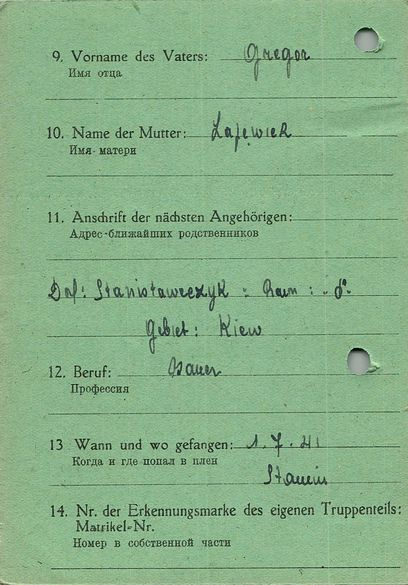 9. Vorname des Vaters: Gregor
Имя отца
10. Name der Mutter:
Имя матери
11. Anschrift der nächsten Angehörigen:
Адрес ближайших родственников
Stanisławczyk
Gebiet: Kiew
12. Beruf: Bauer
Профессия
13 Wann und wo gefangen: 1.7.41
Когда и где попал в плен
14. Nr. der Erkennungsmarke des eigenen Truppenteils:
Matrikel-Nr.
Номер в собственной части